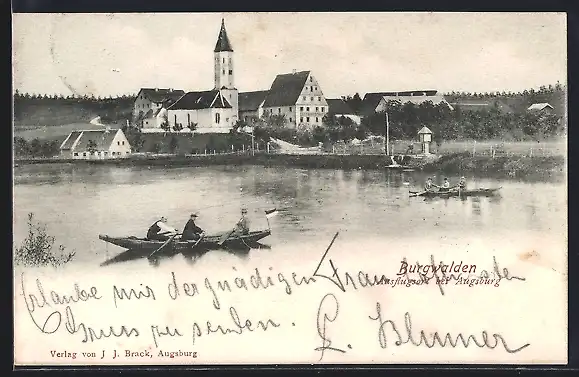 Burgwalden
Ausflugsort bei Augsburg
Erlaube mir der gnädigen Frau
Gruss zu senden. L. Blumer
Verlag von J. J. Brack, Augsburg